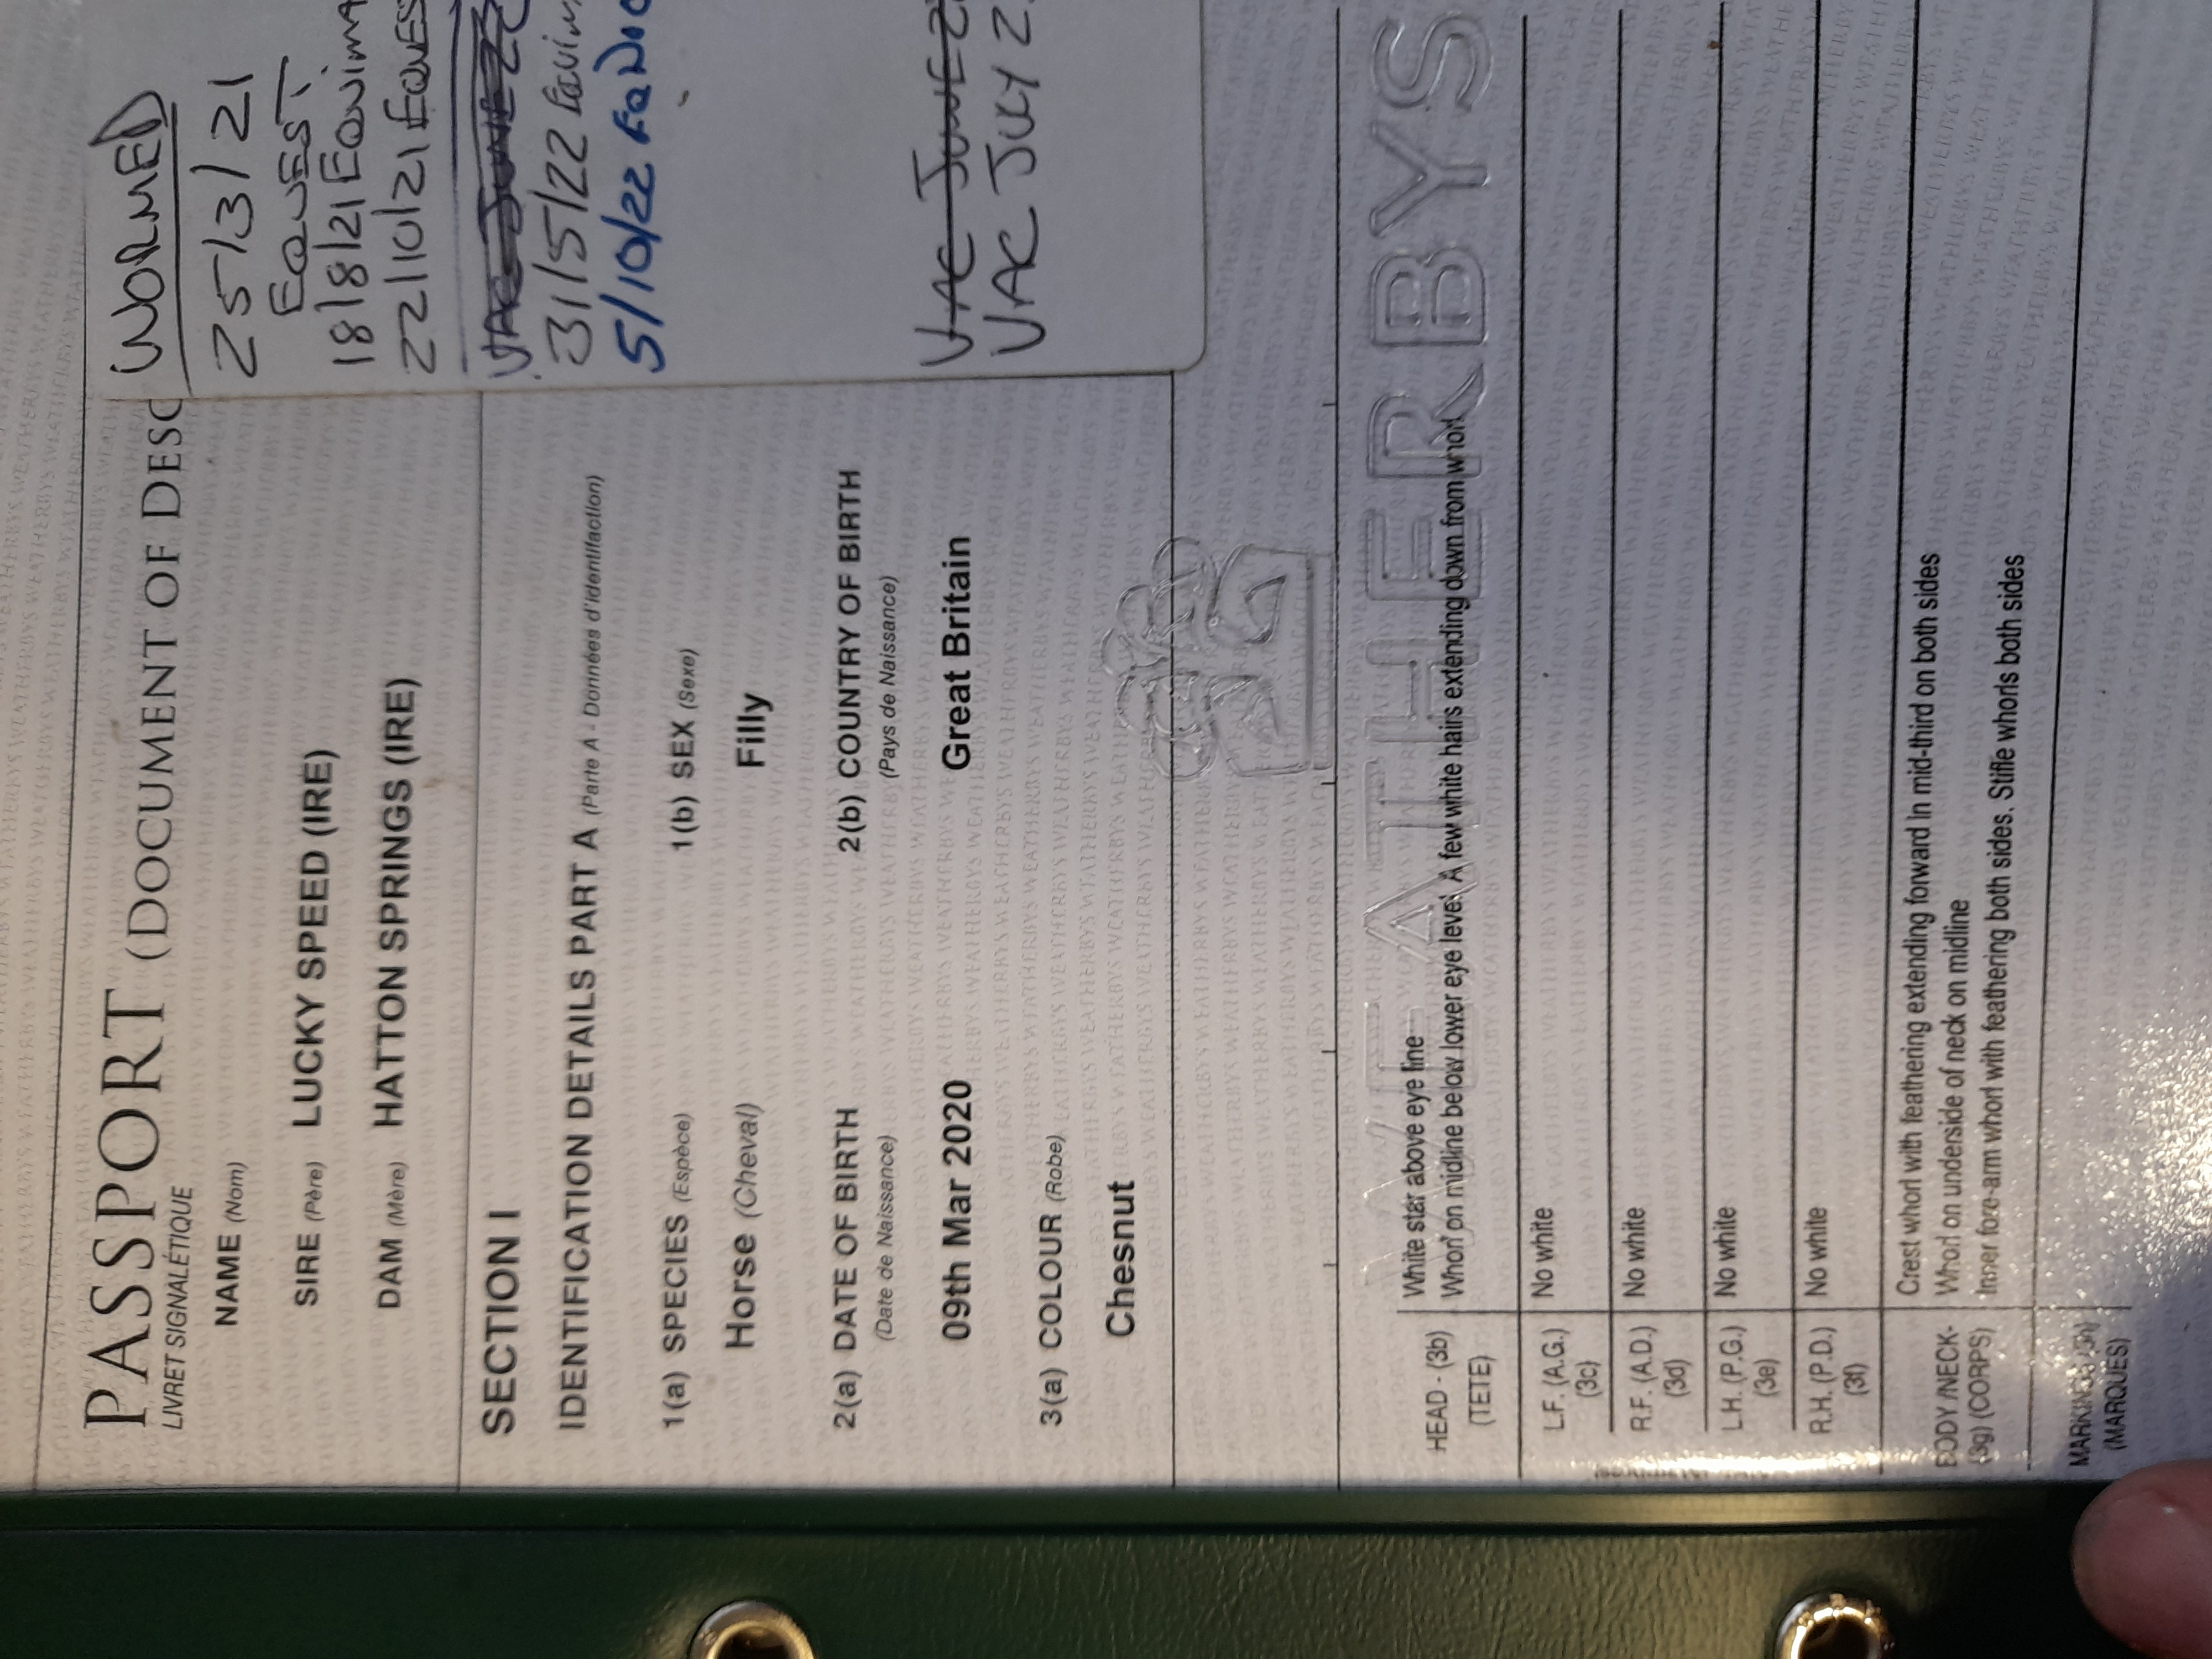 PASSPORT (DOCUMENT OF DESC
LIVRET SIGNALÉTIQUE
NAME (Nom)
SIRE (Père) LUCKY SPEED (IRE)
DAM (Mère) HATTON SPRINGS (IRE)
SECTION I
IDENTIFICATION DETAILS PART A (Parte A - Données d'identifaction)
1(a) SPECIES (Espèce) 1(b) SEX (Sexe)
Horse (Cheval) Filly
2(a) DATE OF BIRTH 2(b) COUNTRY OF BIRTH
(Date de Naissance) (Pays de Naissance)
09th Mar 2020 Great Britain
3(a) COLOUR (Robe)
Chesnut
WORMED
25/3/21
EQUEST
18/8/21 EQUIMA
22/10/21 EQUES
VAC JUNE 22
31/5/22 EQUIM
5/10/22
VAC JUNE 2
VAC JULY 2
WEATHERBYS
HEAD - (3b) White star above eye line
(TETE) Whorl on midline below lower eye level. A few white hairs extending down from whorl
L.F. (A.G.) No white
(3c)
R.F. (A.D.) No white
(3d)
L.H. (P.G.) No white
(3e)
R.H. (P.D.) No white
(3f)
BODY/NECK- Crest whorl with feathering extending forward in mid-third on both sides
(3g) (CORPS) Whorl on underside of neck on midline
Inner fore-arm whorl with feathering both sides. Stifle whorls both sides
MARKINGS (3h)
(MARQUES)